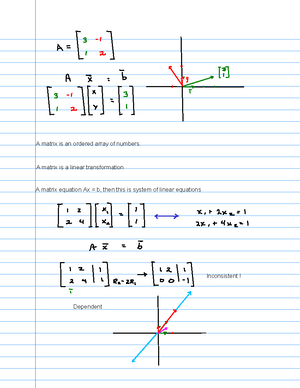 A = [ 3 -1
1 2 ]
A x̄ = b̄
[ 3 -1 [ x = [ 3
1 2 ] y ] 1 ]
[ 3
1 ]
A matrix is an ordered array of numbers.
A matrix is a linear transformation
A matrix equation Ax = b, then this is system of linear equations
[ 1 2 [ x₁ = [ 1 ↔ x₁ + 2x₂ = 1
2 4 ] x₂ ] 1 ] 2x₁ + 4x₂ = 1
A x̄ = b̄
[ 1 2 | 1 → [ 1 2 | 1
2 4 | 1 ] R₂ - 2R₁ 0 0 | -1 ] Inconsistent !
Dependent